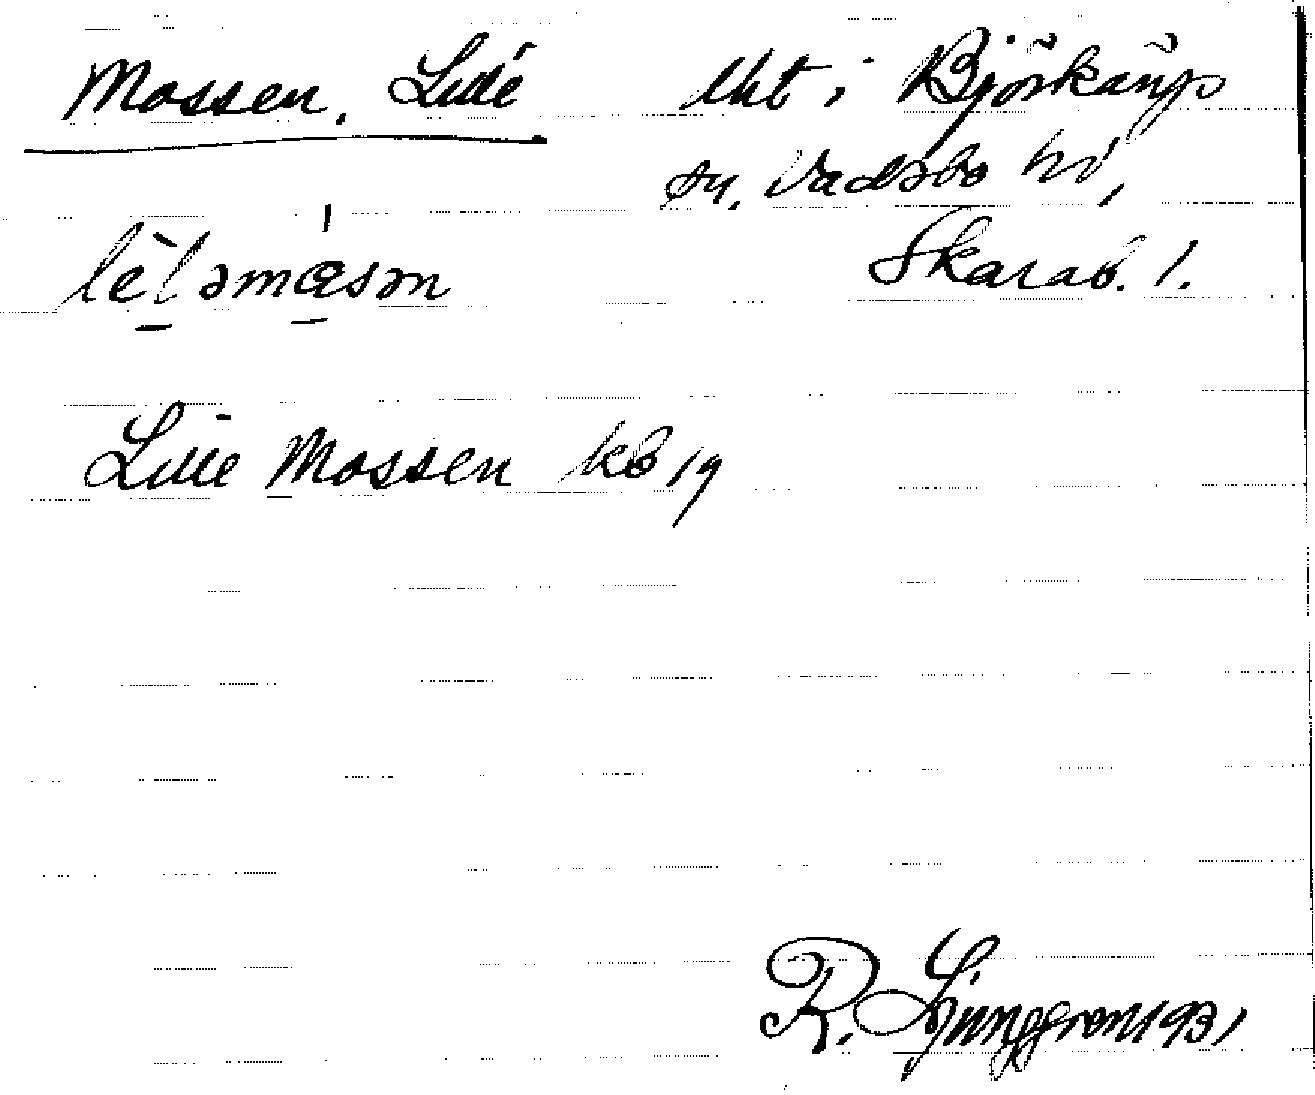 Mossen, Lille
lht i Björkäng
sn, Vadsbo hd,
Skarab. l.
lèləmåsən
Lille Mossen kb 19
R. Ljunggren 1931